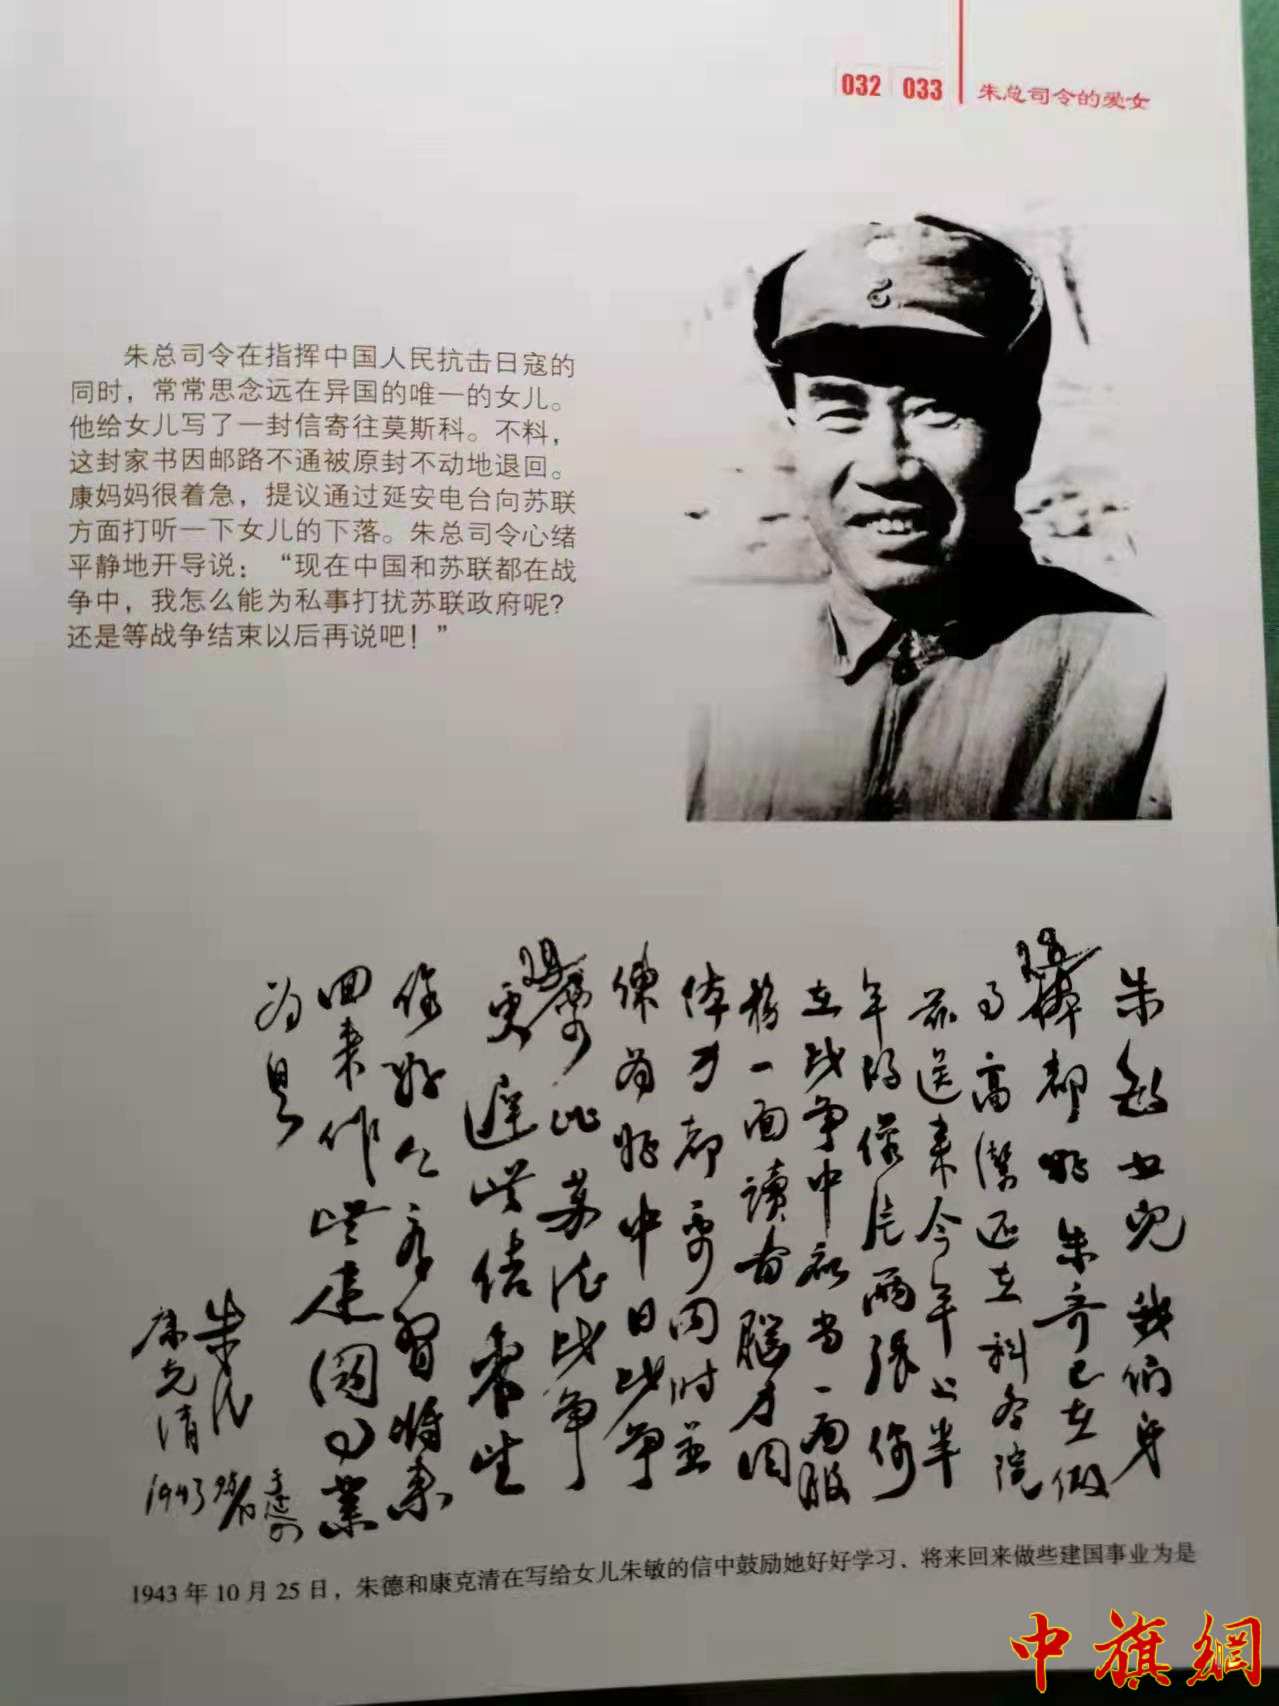 032 033 朱总司令的爱女
朱总司令在指挥中国人民抗击日寇的
同时，常常思念远在异国的唯一的女儿。
他给女儿写了一封信寄往莫斯科。不料，
这封家书因邮路不通被原封不动地退回。
康妈妈很着急，提议通过延安电台向苏联
方面打听一下女儿的下落。朱总司令心绪
平静地开导说：“现在中国和苏联都在战
争中，我怎么能为私事打扰苏联政府呢？
还是等战争结束以后再说吧！”
朱敏女兒我们身
躰都好朱琦已在做
事高潔还在科学院
兹送来今年上半
年的像片两张你
在战争中应当一面服
务一面讀书脑力同
体力都要同时並
练为好中日战争
要比苏德战争
更遲些结束望
你好好学习将来
回来作些建国事業
为是
朱德
康克清
1943 25/10 于延安
1943年10月25日，朱德和康克清在写给女儿朱敏的信中鼓励她好好学习、将来回来做些建国事业为是
中旗網